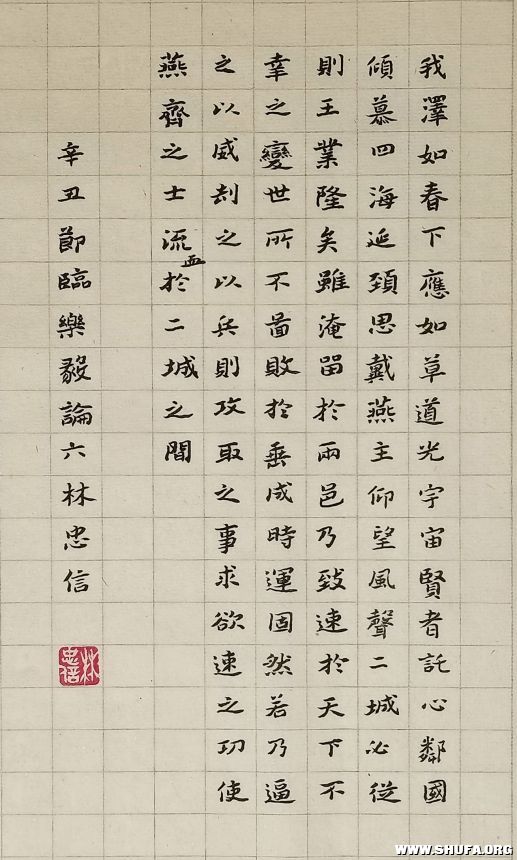 我澤如春下應如草道光宇宙賢者託心鄰國
傾慕四海延頸思戴燕主仰望風聲二城必從
則王業隆矣雖淹留於兩邑乃致速於天下不
幸之變世所不啚敗於垂成時運固然若乃逼
之以威刦之以兵則攻取之事求欲速之功使
燕齊之士流血於二城之間
辛丑節臨樂毅論六林忠信
林忠信
WWW.SHUFA.ORG